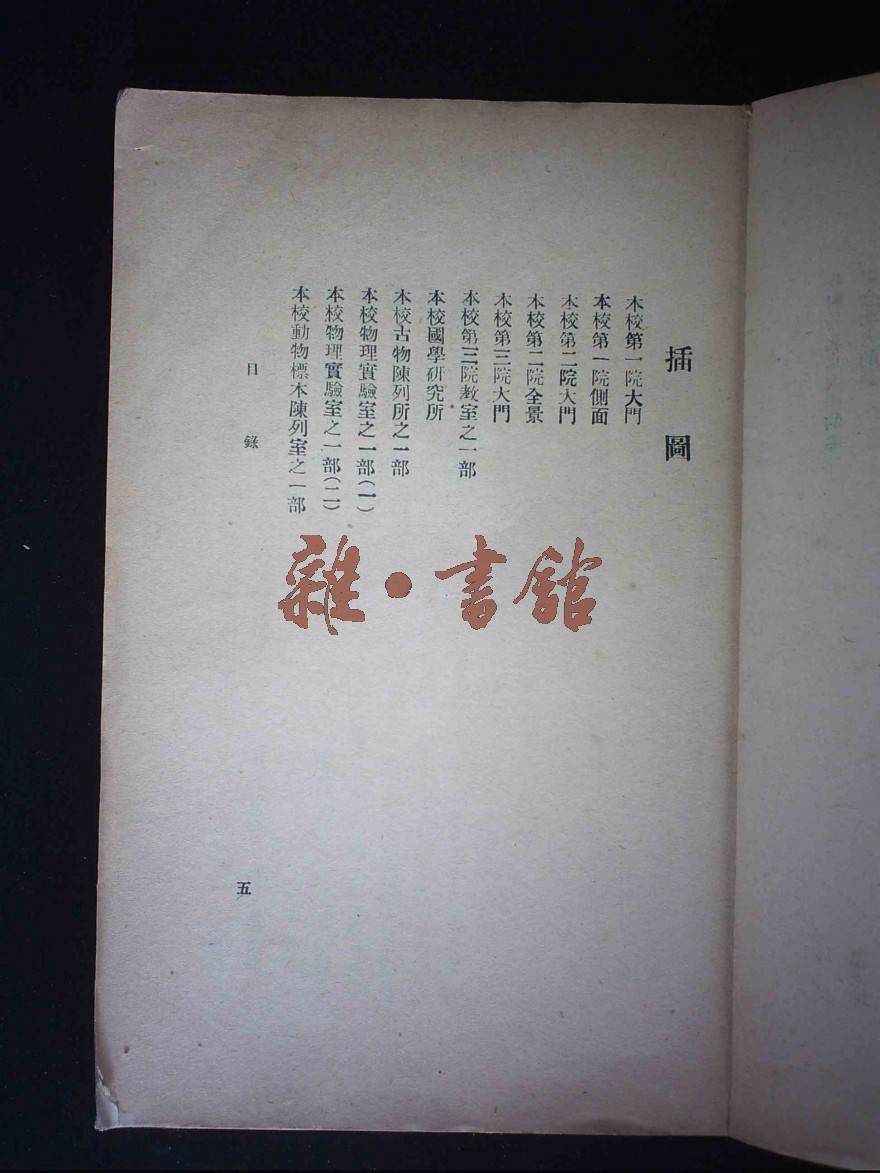 插圖
本校第一院大門
本校第一院側面
本校第二院大門
本校第二院全景
本校第三院大門
本校第三院教室之一部
本校國學研究所
本校古物陳列所之一部
本校物理實驗室之一部(一)
本校物理實驗室之一部(二)
本校動物標本陳列室之一部
目錄
五
雜•書館